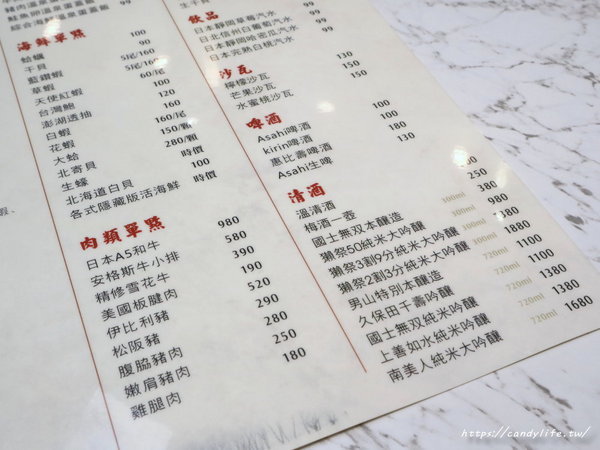 豬肉溫泉蛋蓋飯
鮭魚卵溫泉蛋蓋飯
綜合海鮮溫泉蛋蓋飯
海鮮單點
蛤蠣 100
干貝 90
藍鑽蝦 5尾/160
草蝦 60/尾
天使紅蝦 100
台灣鮑 120
澎湖透抽 160
白蝦 160/尾
花蝦 150/顆
大蛤 280/顆
北寄貝 時價
生蠔 100
北海道白貝 時價
各式隱藏版活海鮮
肉類單點
日本A5和牛 980
安格斯牛小排 580
精修雪花牛 390
美國板腱肉 190
伊比利豬 520
松阪豬 290
腹脇豬肉 280
嫩肩豬肉 250
雞腿肉 180
生干貝
飲品
日本靜岡草莓汽水 99
日北信州白葡萄汽水 99
日本靜岡哈密瓜汽水 99
日本完熟白桃汽水 99
沙瓦
檸檬沙瓦 130
芒果沙瓦 150
水蜜桃沙瓦
啤酒
Asahi啤酒 100
kirin啤酒 100
惠比壽啤酒 180
Asahi生啤 130
清酒
溫清酒
梅酒一壺 250
國士無双本釀造 380
獺祭50純米大吟釀 300ml 980
獺祭3割9分純米大吟釀 300ml 1380
獺祭2割3分純米大吟釀 300ml 1880
男山特別本釀造 720ml 1100
久保田千壽吟釀 720ml 1100
國士無双純米吟釀 720ml 1380
上善如水純米吟釀 720ml 1380
南美人純米大吟釀 720ml 1680
https://candylife.tw/